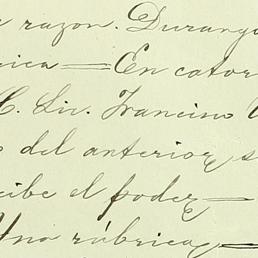 razon. Durang
rica = En cator
C. Lic. Francisco
del anterior, s
cibe el poder —
Una rúbrica, —